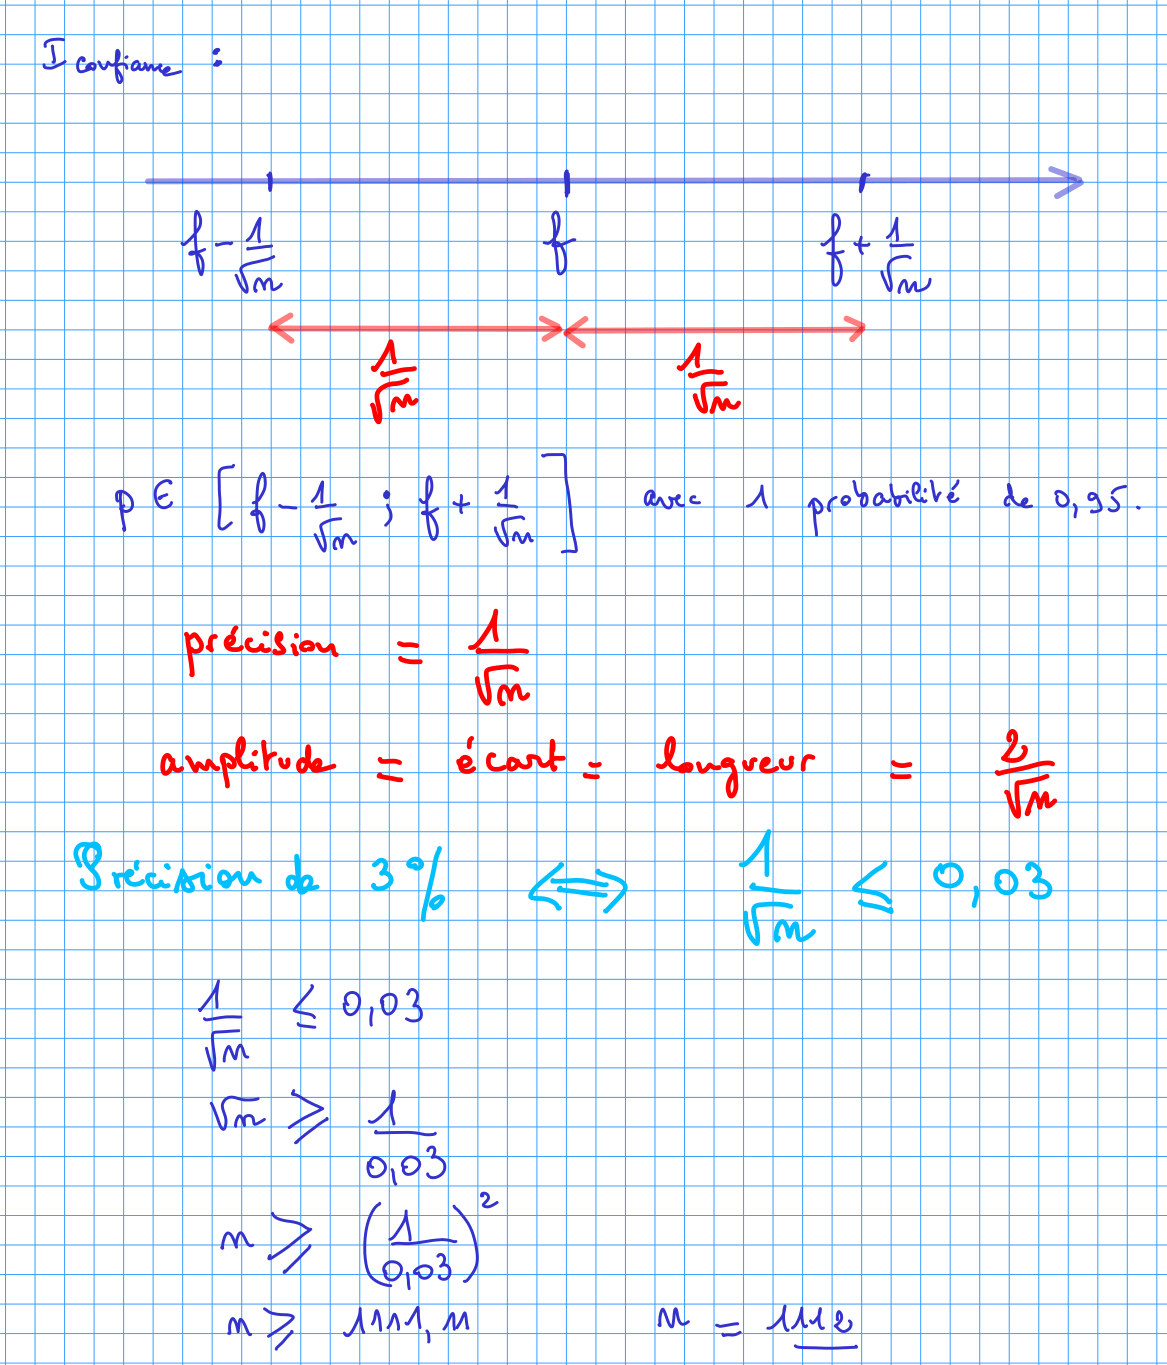 I confiance :
f - 1/√n f f + 1/√n
1/√n 1/√n
p ∈ [ f - 1/√n ; f + 1/√n ] avec 1 probabilité de 0,95.
précision = 1/√n
amplitude = écart = longueur = 2/√n
Précision de 3% ⟺ 1/√n ≤ 0,03
1/√n ≤ 0,03
√n ⩾ 1/0,03
n ⩾ (1/0,03)²
n ⩾ 1111,11 n = 1112